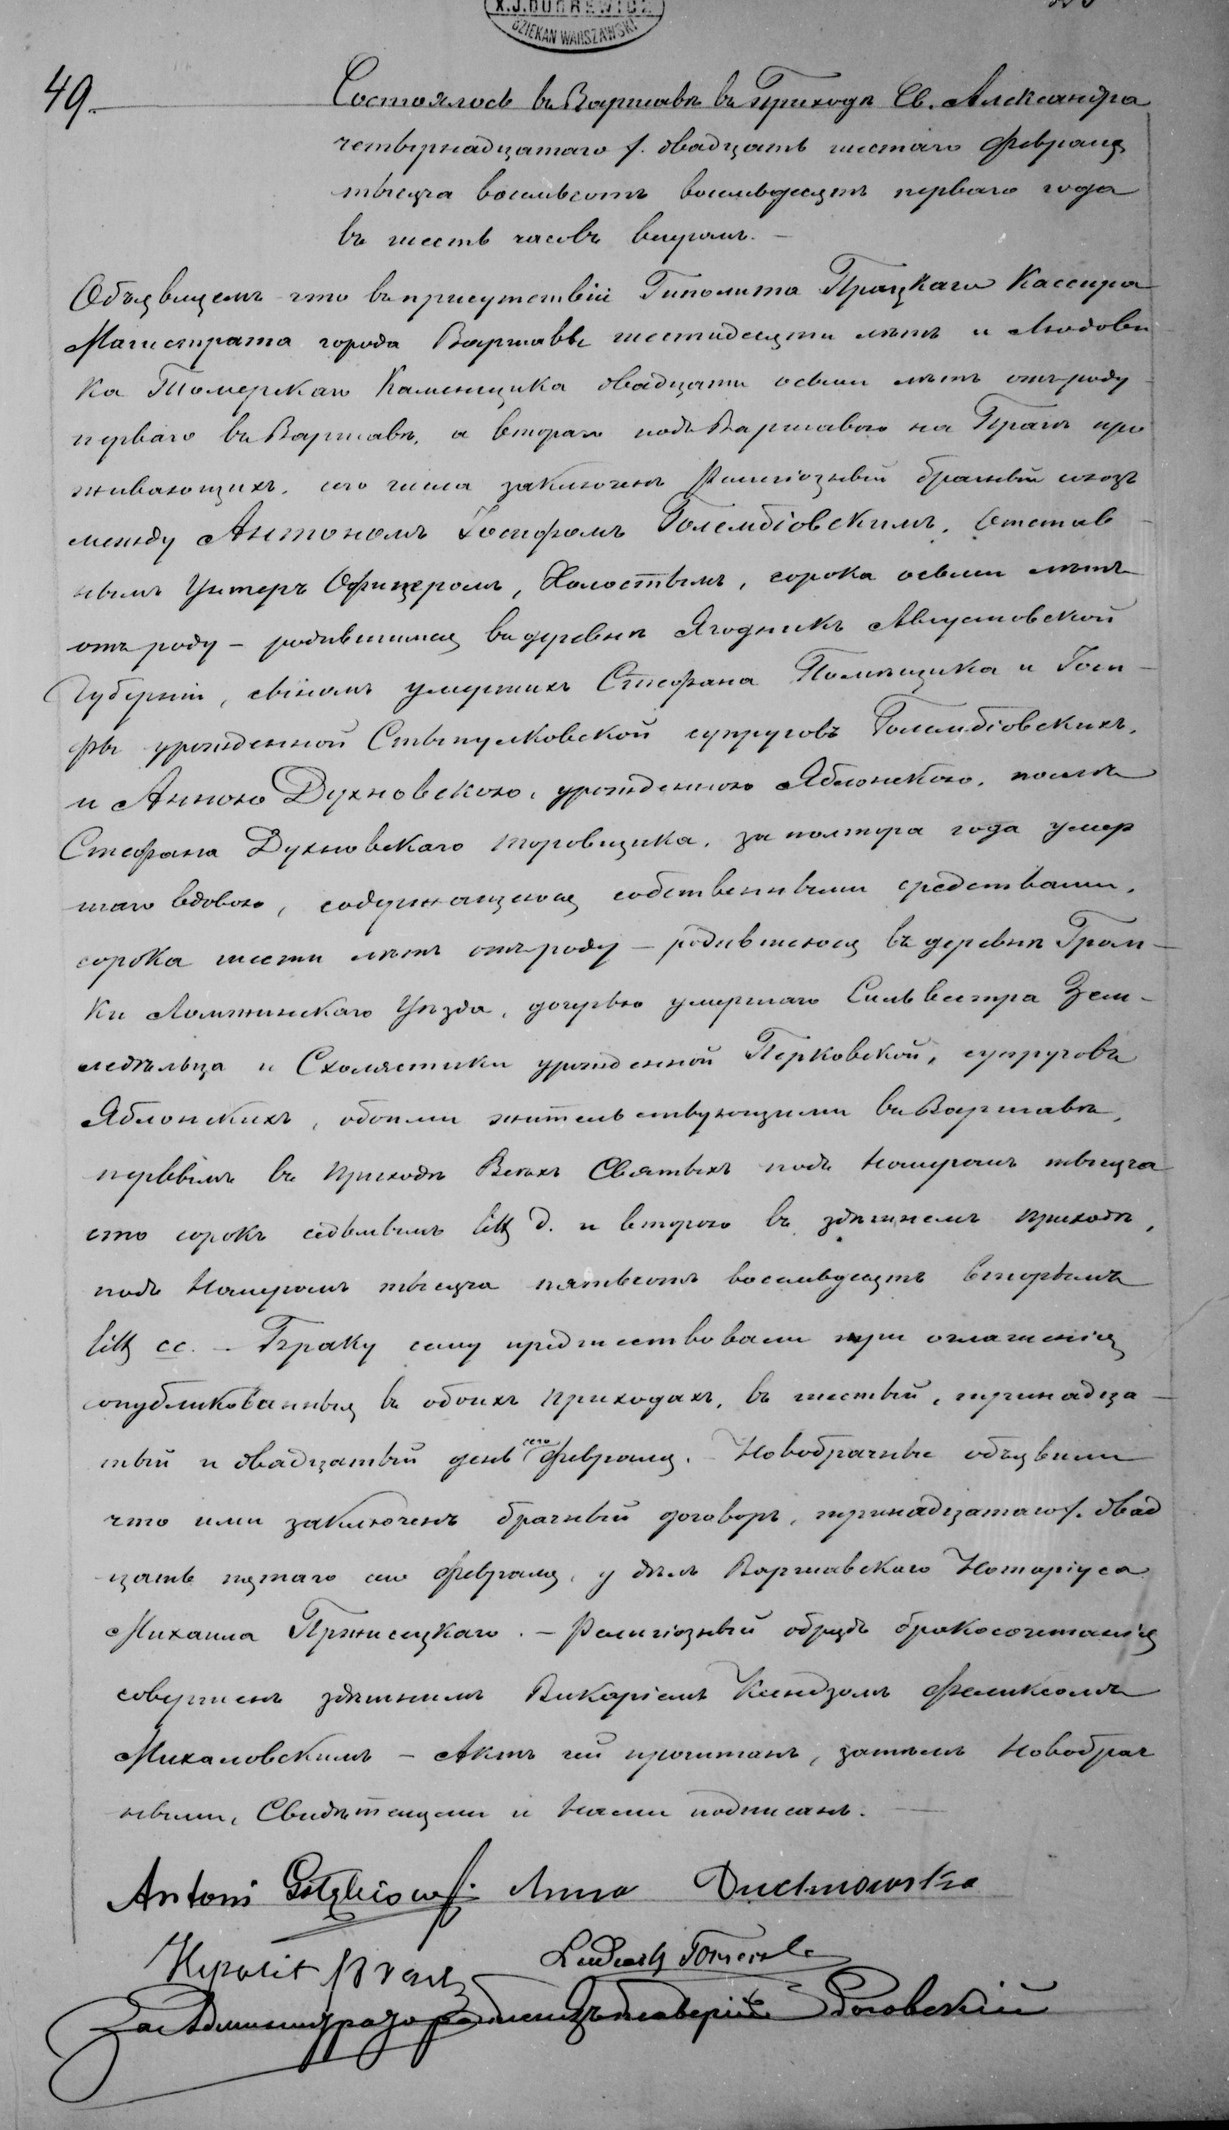 X. J. DUDREWICZ
DZIEKAN WARSZAWSKI
49.
Состоялось въ Варшавѣ въ Приходѣ Св. Александра
четырнадцатаго /. двадцать шестаго Февраля
тысяча восемьсотъ восемьдесятъ перваго года
въ шесть часовъ вечеромъ. —
Объявляемъ что въ присутствіи Гиполита Кассира
Магистрата города Варшавы шестидесяти лѣтъ и Людови
ка Томерскаго Каменщика двадцати осьми лѣтъ отъ роду
перваго въ Варшавѣ, а втораго подъ Варшавою на Прагѣ про
живающихъ, сего числа заключенъ Религіозный брачный союзъ
между Антономъ Іосифомъ Голембіовскимъ, Отстав
нымъ Унтеръ Офицеромъ, Холостымъ, сорока осьми лѣтъ
отъ роду — родившимся въ деревнѣ Ягодникъ Августовской
Губерніи, сыномъ умершихъ Стефана Помѣщика и Іози-
фы урожденной супруговъ Голембіовскихъ,
и Анною Духновскою, урожденною Яблонскою, послѣ
Стефана Духновскаго торовщика, за полтора года умер
шаго вдовою, содержащеюся собственными средствами,
сорока шести лѣтъ отъ роду — родившеюся въ деревнѣ Грам-
ки Ломжинскаго Уѣзда, дочерью умершаго Сильвестра Зем-
ледѣльца и Схоластики урожденной Перковской, супруговъ
Яблонскихъ, обоими жительствующими въ Варшавѣ,
первымъ въ приходѣ Всѣхъ Святыхъ подъ Номеромъ тысяча
сто сорокъ седьмымъ litt d. и второю въ здѣшнемъ приходѣ,
подъ Номеромъ тысяча пятьсотъ восемьдесятъ вторымъ
litt cc. — Браку сему предшествовали три оглашенія
опубликованныя въ обоихъ приходахъ, въ шестый, тринадца-
тый и двадцатый день сего Февраля. — Новобрачные объявили
что ими заключенъ брачный договоръ, тринадцатаго /. двад
цать пятаго сего Февраля, у дѣлъ Варшавскаго Нотаріуса
Михаила Пржисецкаго. — Религіозный обрядъ бракосочетанія
совершенъ здѣшнимъ Викаріемъ Ксендзомъ Феликсомъ
Михаловскимъ — Актъ сей прочитанъ, затѣмъ Новобрач
ными, Свидѣтелями и Нами подписанъ. —
Antoni Gołębiowski Anna Duchnowska
Hipolit Ludwik Tomerski
За Администратора